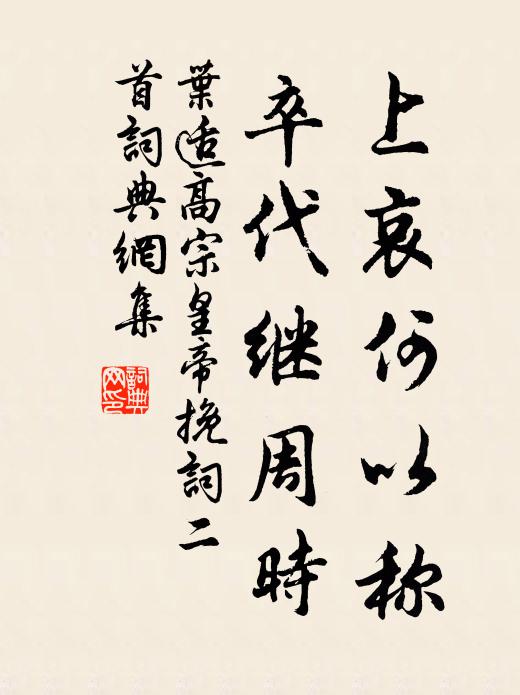 上哀何以称
卒代继周時
葉适高宗皇帝挽詞二
首詞典網集
詞典網印